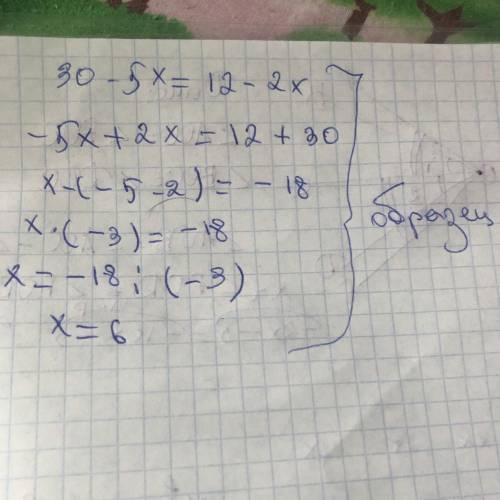 30 - 5x = 12 - 2x
-5x + 2x = 12 + 30
x - (-5 - 2) = -18
x · (-3) = -18
x = -18 : (-3)
x = 6
образец